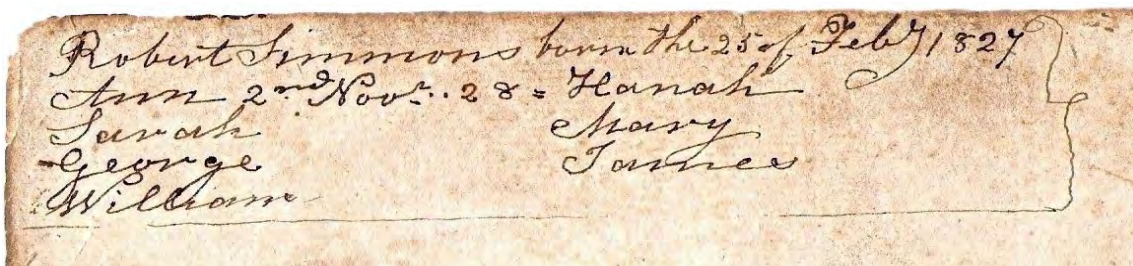 Robert Simmons born the 25 of Feby 1827
Ann 2nd Novr. 28 = Hanah
Sarah Mary
George James
William